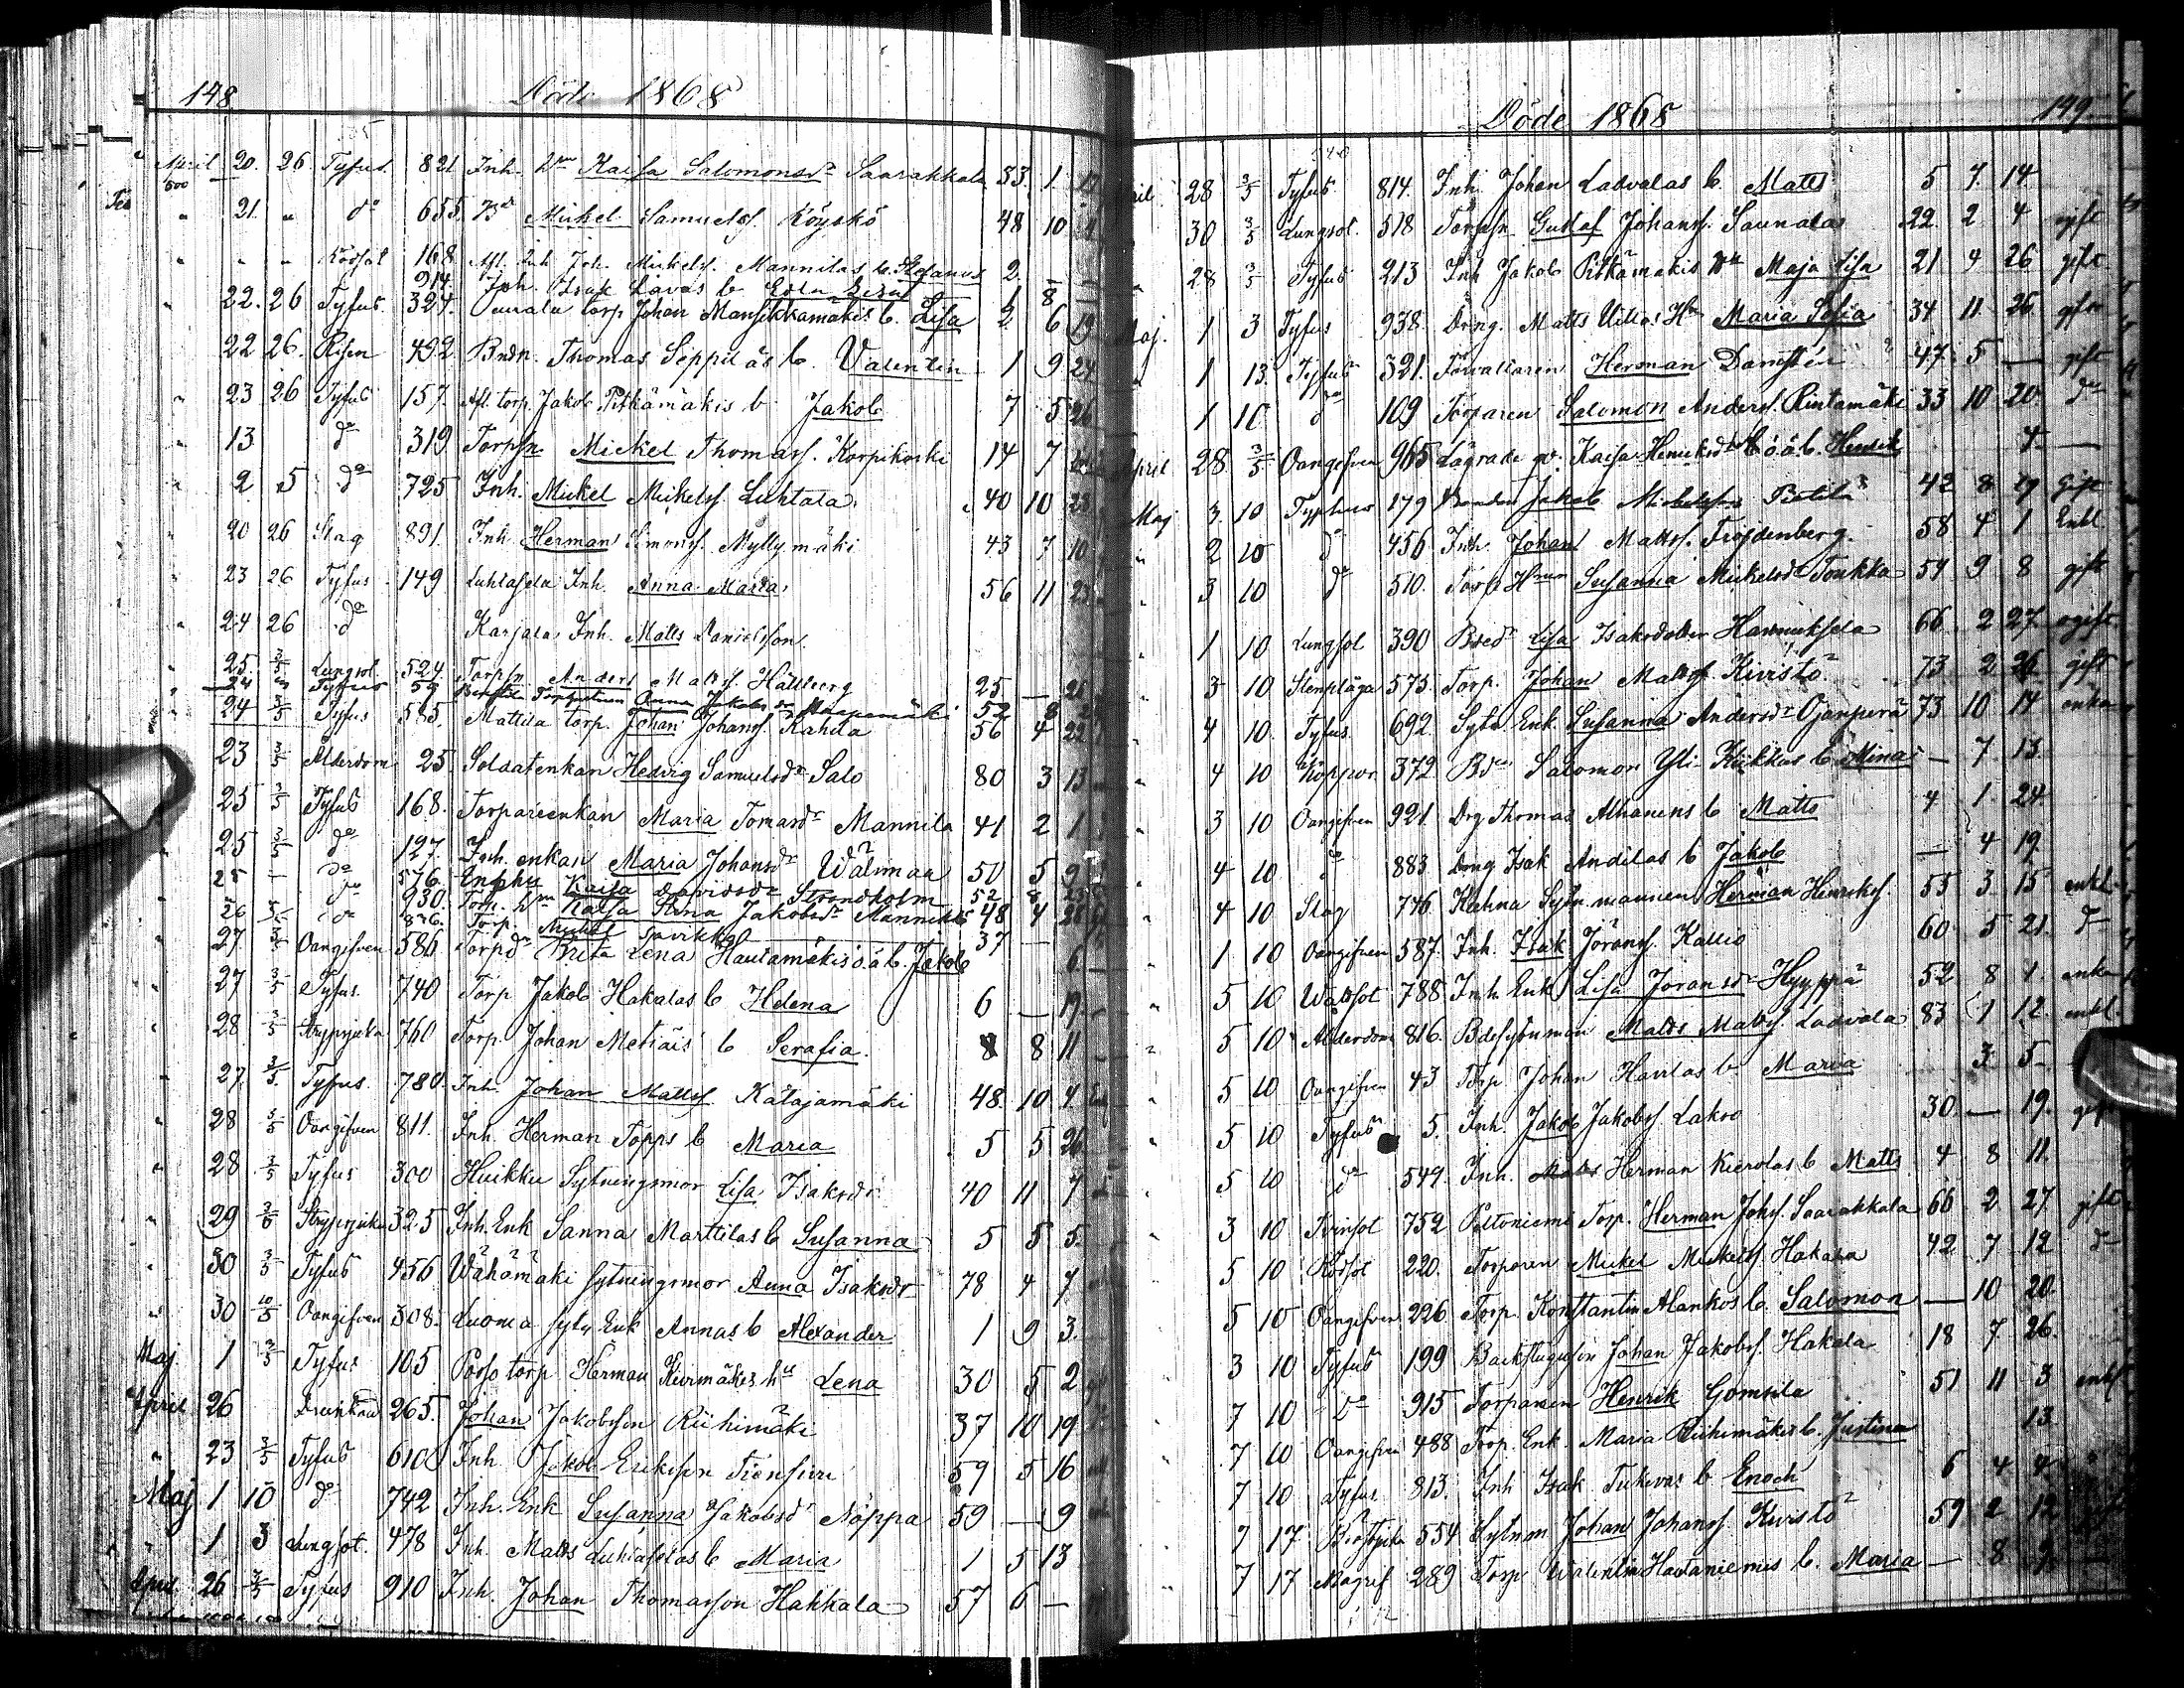 148 Döde 1868
April 20. 26. Tyfus. 821 Inh. Kaisa Salomonsdr Saarakkala 33. 1.
" 21. " do 655. Mickel Samuelsf. Köyskö 48 10
" " " Rödsot 168 Afl. Inh Joh. Mickelsf. Mannilas b. Stefanus 2
914. Joh. Isak Lavas b. 1 8
" 22. 26 Tyfus. 324. torp Johan Mansikkamäkis b. Lisa 2 6 19
22 26. 492 Bndn. Thomas Seppiläs b. Valentin 1 9 24
" 23 26 Tyfus 157. Afl. torp. Jakob Pitkämäkis b Jakob 7 5 26
" 13 do 319 Torpsn Mickel Thomasf. Korpikoski 14 7
" 2 5 do 725 Inh. Mickel Mickelsf. Luhtala 40 10 23
" 20 26 Slag 891. Inh Herman Simonsf. Myllymäki 43 7 10
" 23 26 Tyfus 149 Luhtasela Inh. Anna Maria 56 11 23
" 24 26 do Karjala Inh. Matts Danielsson
" 25. 3/5 Lungsot. 524. Torpsn Anders Mattsf. Hällberg 25 — 21
" 24 " Tyfus 59 Anna Jakobsdr 52 8
" 24 3/5 Tyfus 585. Mattila torp. Johan Johansf. Kahila 56 4 22
23 3/5 Ålderdom 25. Soldatenkan Hedvig Samuelsdr Salo 80 3 13
25 3/5 Tyfus 168. Torpareenkan Maria Tomasdr Mannila 41 2 1
25 3/5 do 127. Inh. enkan Maria Johansdr Wäliman 50 5 9
25 — do 576. Kaisa Davidsdr Strandholm 52 8 25
do 930. Torp. Kaisa Stina Jakobsdr 48 4 28
26 do 876. Torp. Mickel 37 —
27. 3/5 Oangifven 586. Torpdr Greta Lena Hautamäkis o.ä. b. Jakob 6
27 3/5 Tyfus. 740 Torp Jakob Hakalas b Helena 6 — 19
28. 3/5 Strypsjuka 760 Torp. Johan Metiäis b Serafia 8 8 11
27. 3/5 Tyfus. 780. Inh. Johan Mattsf Katajamäki 48. 10 4.
28 3/5 Oangifven 811. Inh. Herman Topps b Maria 5 5 26
28 3/5 Tyfus 300 Huikku Sytningsmor Lisa Isaksdr 40 11 7
29 3/5 Strypsjuka 325 Inh. Enk Sanna Marttilas b Susanna 5 5 5.
30 3/5 Tyfus 456 Wähämäki sytningsmor Anna Isaksdr 78 4 7
30 10/5 Oangifven 308. Luoma sytn Enk Annas b Alexander 1 9 3.
Maj 1 3/5 Tyfus 105 torp Herman Kurmäkis hu Lena 30 5 2
April 26 265. Johan Jakobsson Riihimäki 37 10 19
" 23 3/5 Tyfus 610 Inh Jakob Eriksson 59 5 16
Maj 1 10 do 742 Inh. Enk Susanna Jakobsdr Näppa 59 — 9
" 1 3 Lungsot. 478 Inh. Matts Luhtaselas b Maria 1 5 13
April 26 3/5 Tyfus 910 Inh. Johan Thomasson Hakkala 57 6 —
Döde 1868 149.
April 28 3/5 Tyfus 814. Inh. Johan Ladvalas b. Matts 5 7. 14
" 30 3/5 Lungsot. 518 Torpsn Gustaf Johansf. Saunalas 22. 2 4 gift
" 28 3/5 Tyfus 213 Inh Jakob Pitkämäkis Maja Lisa 21 4 26 gift
Maj. 1 3 Tyfus 938. Dräng. Matts Maria Sofia 34 11 26 gift
" 1 13. Tyfus 321. Förvaltaren Herman Damstén 47. 5 — gift
1 10 do 109 Torparen Salomon Andersf. Rintamäki 33 10 20 do
April 28 3/5 Oangifven 965 Lagrade qv. Kaisa Henriksdr b. o. ä. b. Henrik 4 —
Maj 3 10 Typhus 179 Bonden Jakob Mickelsson 42 8 19 gift
" 2 10 do 456 Inh. Johan Mattsf. Fröjdenberg. 58 4 1 Enkl.
3 10 do 510. Torp Hun Susanna Mickelsdr Toukka 59 9 8 gift
1 10 Lungsot 390 Lisa Isaksdotter Hannuksela 66 2 27 ogift
3 10 Stenplåga 575. Torp. Johan Mattsf Kivistö 73 2 26 gift
" 4 10. Tyfus. 692. Sytn. Enk. Susanna Andersdr Ojanperä 73 10 14 enka
4 10 Koppor 372 Salomon Yli-Kuikkas b Mina — 7 13.
" 3 10 Oangifven 921. Drg Thomas Alhanens b Matts 4 1 24
4 10 do 883 Dräng Isak Andilas b Jakob — 4 19
" 4 10 Slag 746 Sytn. mannen Herman Henriksf. 55 3 15 enkl.
1 10 Oangifven 587. Inh. Isak Göransf. Kallio 60 5 21. do
" 5 10 Wattsot 788 Inh. Enk Lisa Göransdr Hyyppä 52 8 1. enka
5 10 Ålderdom 816. Matts Mattsf. Ladvala 83 1 12. enkl.
5 10 Oangifven 43 Torp Johan Havilas b Maria 3 5
5 10 Tyfus 5. Inh. Jakob Jakobsf Lakso 30 — 19. gift
5 10 do 549. Inh. Herman Kierolas b Matts 4 8 11.
3 10 Tvinsot 752 Peltoniemi Torp. Herman Johsf. Saarakkala 66 2 27 gift
5 10 Rödsot 220. Torparen Mickel Mickelsf. Hakala 42 7 12 do
5 10 Oangifven 226 Torp Konstantin Alankos b. Salomon — 10 20.
3 10 Tyfus 199 Backstugusn Johan Jakobsf. Hakala 18 7 26.
7 10 do 915 Torparen Henrik Gomsila 51 11 3 enkl
7 10 Oangifven 488 Torp. Enk. Maria Riihimäkis b. Justina 13.
7 10 Tyfus 813. Inh Isak Tukevas b Enoch 6 4 4
7 17 Bröstsjuka 554 Sytnm Johan Johansf. Kivistö 59 2 12
7 17 Magref 289 Torp Walentin Hautaniemis b. Maria — 8